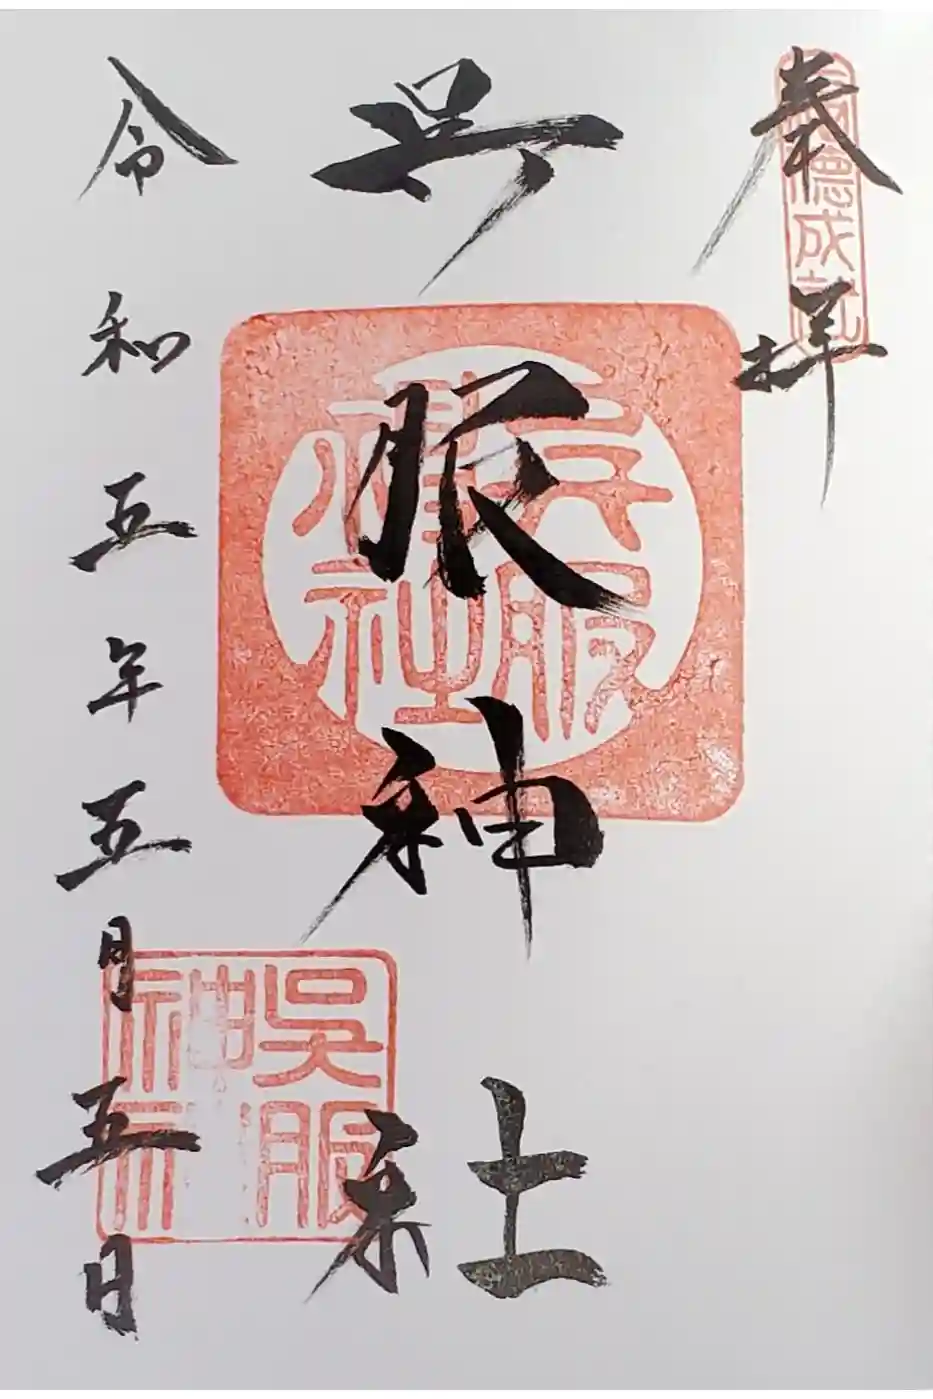 奉拝
徳成就
呉服神社
呉服神社
令和五年五月五日
呉服神社